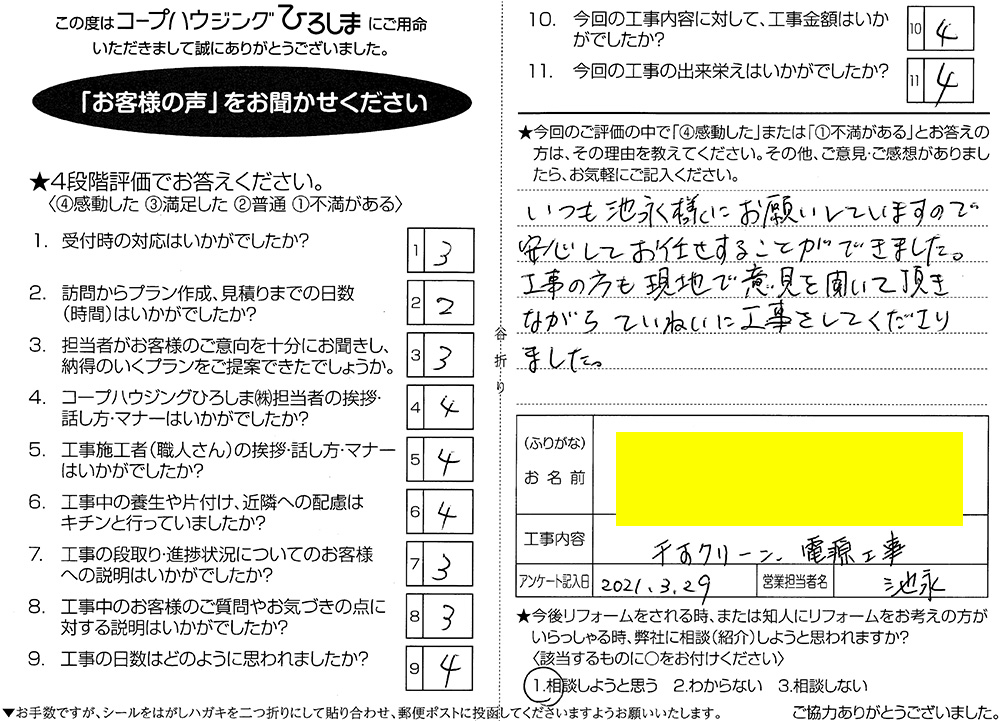 この度はコープハウジングひろしまにご用命
いただきまして誠にありがとうございました。
「お客様の声」をお聞かせください
★4段階評価でお答えください。
〈④感動した ③満足した ②普通 ①不満がある〉
1. 受付時の対応はいかがでしたか?
1 3
2. 訪問からプラン作成、見積りまでの日数
(時間)はいかがでしたか?
2 2
3. 担当者がお客様のご意向を十分にお聞きし、
納得のいくプランをご提案できたでしょうか。
3 3
4. コープハウジングひろしま㈱担当者の挨拶・
話し方・マナーはいかがでしたか?
4 4
5. 工事施工者(職人さん)の挨拶・話し方・マナー
はいかがでしたか?
5 4
6. 工事中の養生や片付け、近隣への配慮は
キチンと行っていましたか?
6 4
7. 工事の段取り・進捗状況についてのお客様
への説明はいかがでしたか?
7 3
8. 工事中のお客様のご質問やお気づきの点に
対する説明はいかがでしたか?
8 3
9. 工事の日数はどのように思われましたか?
9 4
▼お手数ですが、シールをはがしハガキを二つ折りにして貼り合わせ、郵便ポストに投函してくださいますようお願いいたします。
谷折り
10. 今回の工事内容に対して、工事金額はいか
がでしたか?
10 4
11. 今回の工事の出来栄えはいかがでしたか?
11 4
★今回のご評価の中で「④感動した」または「①不満がある」とお答えの
方は、その理由を教えてください。その他、ご意見・ご感想がありまし
たら、お気軽にご記入ください。
いつも池永様にお願いしていますので
安心してお任せすることができました。
工事の方も現地で意見を聞いて頂き
ながらていねいに工事をしてくださり
ました。
(ふりがな)
お名前
工事内容
クリーン、電源工事
アンケート記入日 2021.3.29 営業担当者名 池永
★今後リフォームをされる時、または知人にリフォームをお考えの方が
いらっしゃる時、弊社に相談(紹介)しようと思われますか?
〈該当するものに○をお付けください〉
1.相談しようと思う 2.わからない 3.相談しない
ご協力ありがとうございました。